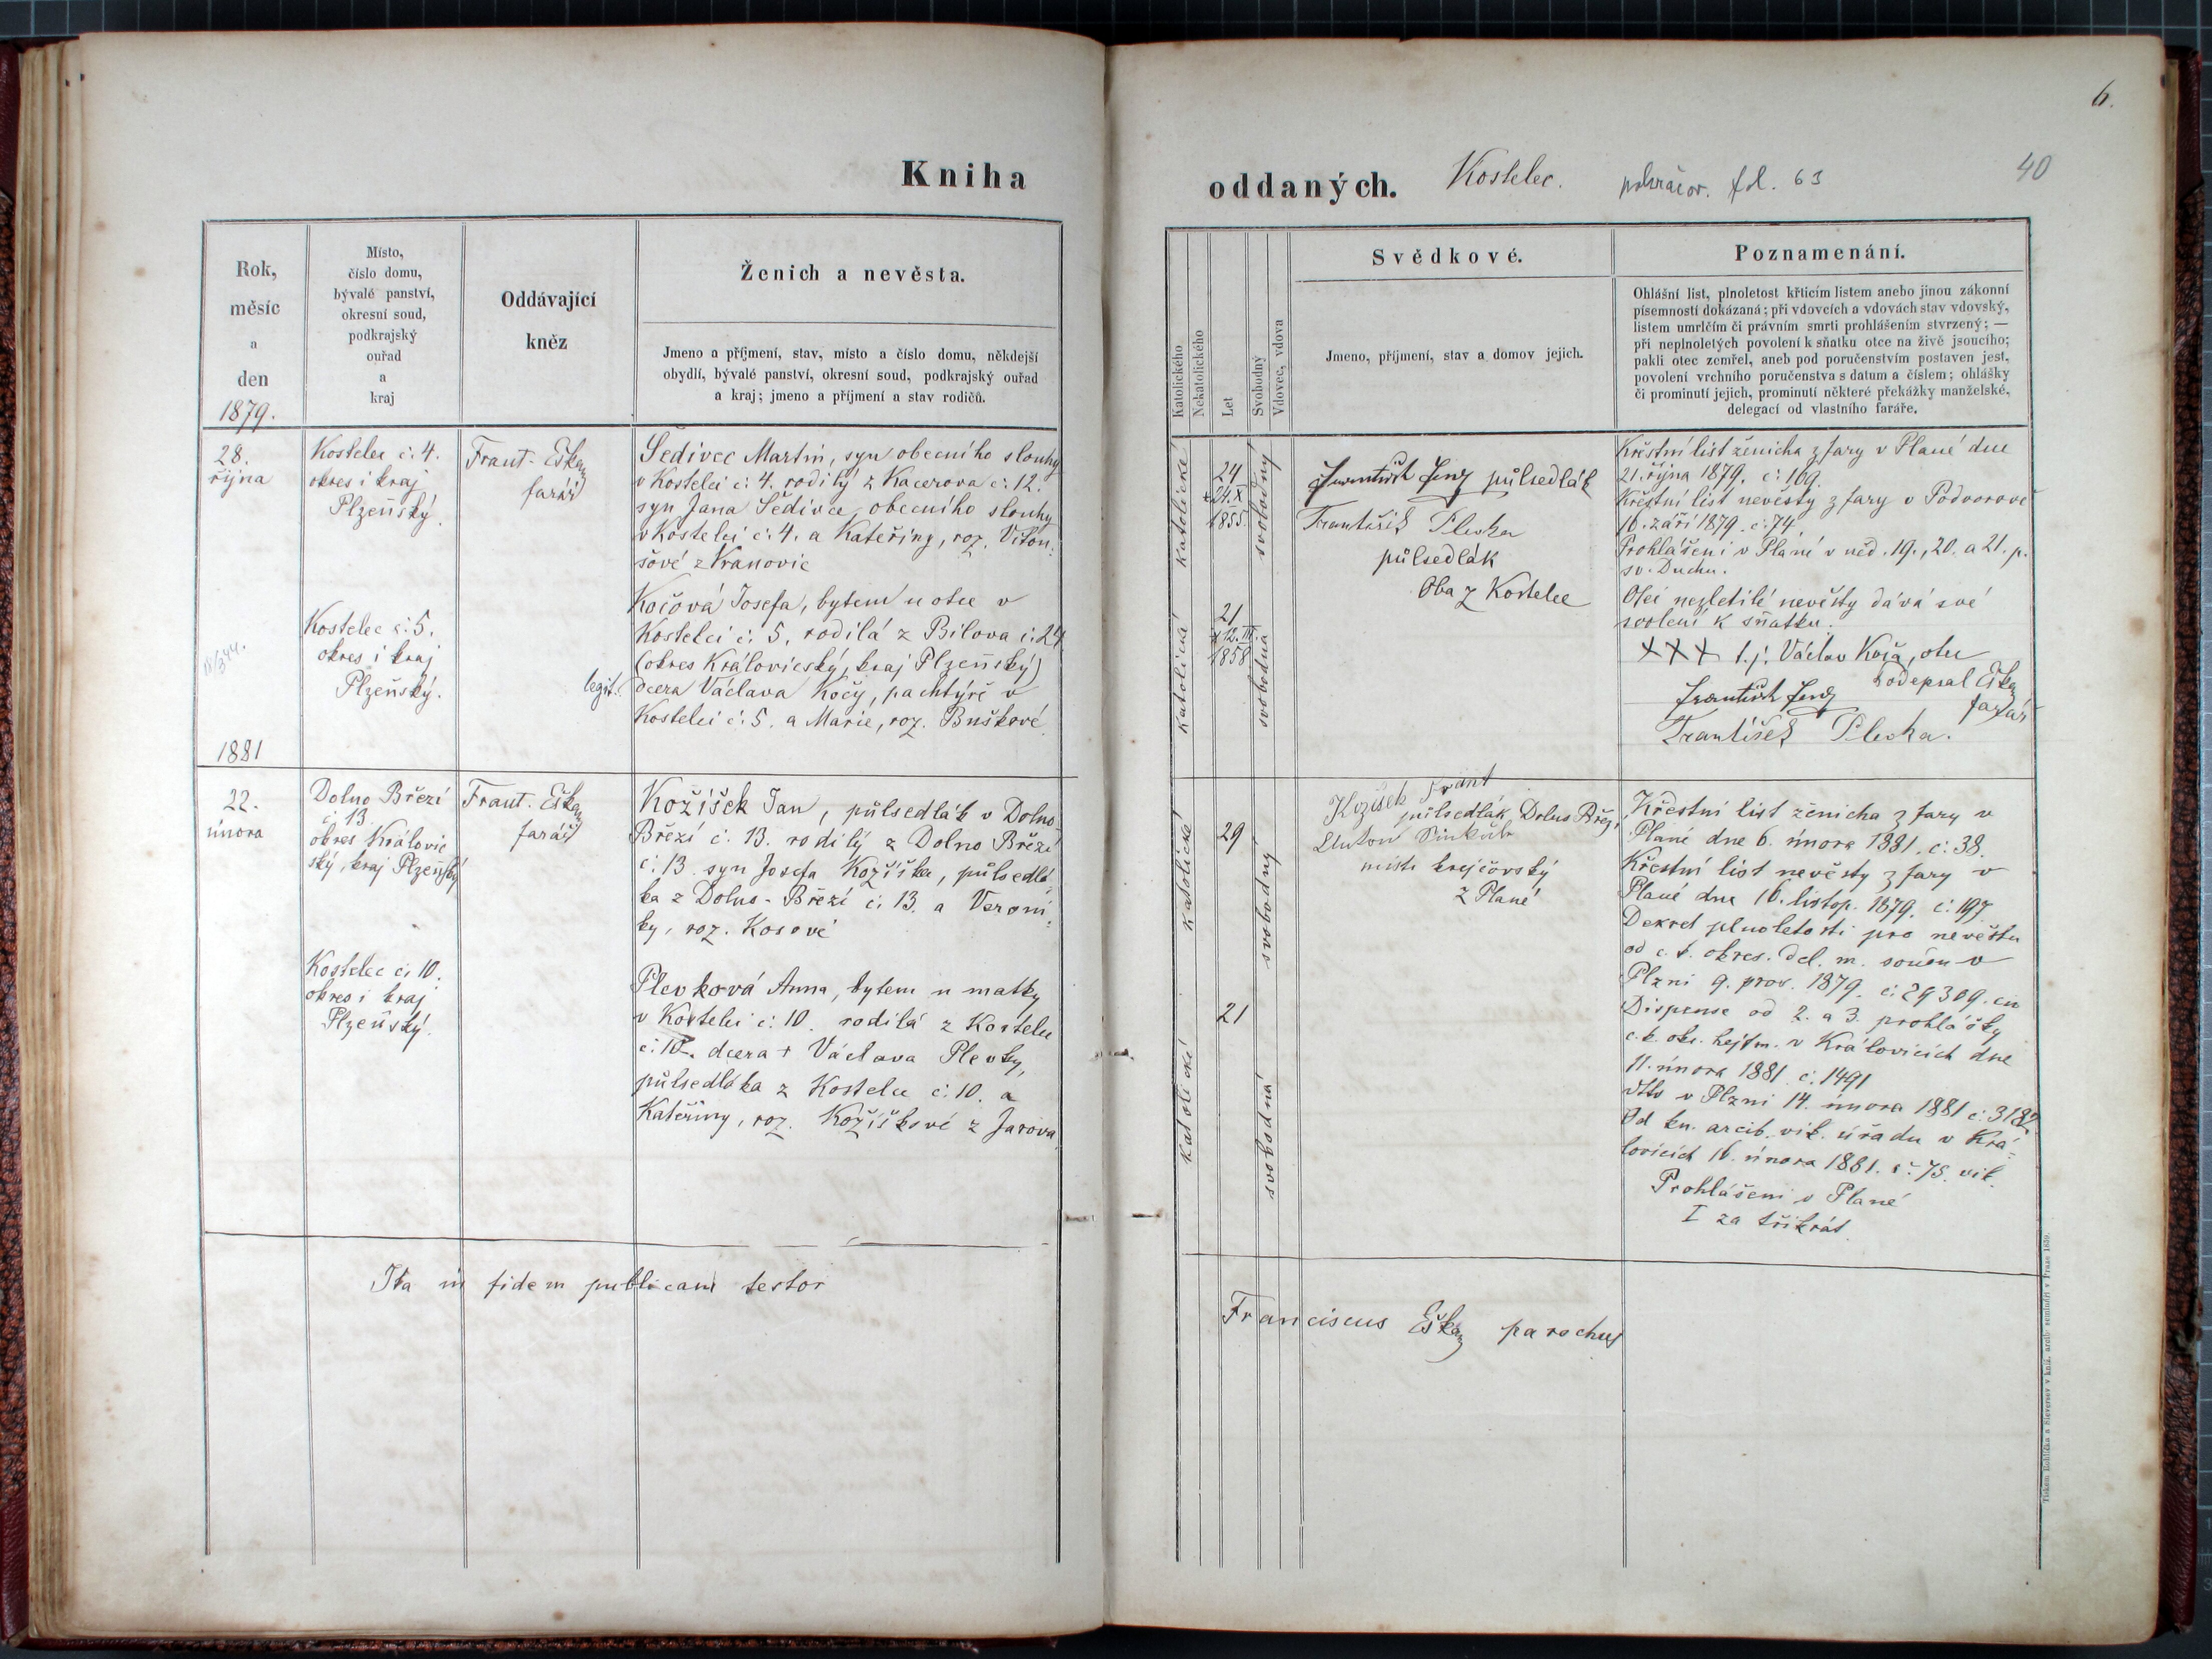 6.
40
Kniha
oddaných. Kostelec. pokračov. fol. 63
Rok,
měsíc
a
den
1879.
Místo,
číslo domu,
bývalé panství,
okresní soud,
podkrajský
ouřad
a
kraj
Oddávající
kněz
Ženich a nevěsta.
Jmeno a příjmení, stav, místo a číslo domu, někdejší
obydlí, bývalé panství, okresní soud, podkrajský ouřad
a kraj; jmeno a příjmení a stav rodičů.
28.
října
Kostelec č. 4.
okres i kraj
Plzeňský.
Frant. Eška
farář
Šedivec Martin, syn obecního slouhy
v Kostelci č. 4. rodilý z Kacerova č. 12.
syn Jana Šedivce, obecního slouhy
v Kostelci č. 4. a Kateřiny, roz. Viton-
šové z Kranovic
Kostelec č. 5.
okres i kraj
Plzeňský.
legit.
Kočová Josefa, bytem u otce v
Kostelci č. 5, rodilá z Bilova č. 24
(okres Královický, kraj Plzeňský)
dcera Václava Kočy, pachtýře v
Kostelci č. 5. a Marie, roz. Buškové
1881
22.
února
Dolno Březí
č. 13
okres Královic
ský, kraj Plzeňský
Frant. Eška
farář
Kožíšek Jan, půlsedlák v Dolno-
Březí č. 13. rodilý z Dolno Březí
č. 13. syn Josefa Kožíška, půlsedlá
ka z Dolno-Březí č. 13. a Veroni-
ky, roz. Kosové
Kostelec č. 10.
okres i kraj
Plzeňský.
Plevková Anna, bytem u matky
v Kostelci č. 10. rodilá z Kostelce
č. 10. dcera + Václava Plevky,
půlsedláka z Kostelce č. 10. a
Kateřiny, roz. Kožíškové z Jarova
Ita in fidem publicam testor
Katolického
Nekatolického
Let
Svobodný
Vdovec, vdova
Svědkové.
Jmeno, příjmení, stav a domov jejich.
Poznamenání.
Ohlášní list, plnoletost křticím listem anebo jinou zákonní
písemností dokázaná; při vdovcích a vdovách stav vdovský,
listem umrlčím či právním smrti prohlášením stvrzený; —
při neplnoletých povolení k sňatku otce na živě jsoucího;
pakli otec zemřel, aneb pod poručenstvím postaven jest,
povolení vrchního poručenstva s datum a číslem; ohlášky
či prominutí jejich, prominutí některé překážky manželské,
delegací od vlastního faráře.
katolické
24
* 24. X
1855.
svobodný
František půlsedlák
František Plevka
půlsedlák
Oba z Kostelce
katolická
21
* 12. III.
1858
svobodná
Křestní list ženicha z fary v Plané dne
21. října 1879. č. 169.
Křestní list nevěsty z fary v Podvorově
16. září 1879. č. 74.
Prohlášeni v Plané v ned. 19., 20. a 21. p.
sv. Duchu.
Otec nezletilé nevěsty dává své
svolení k sňatku.
+++ t. j. Václav Koča, otec
podepsal Eška
farář
František
František Plevka.
katolické
29
svobodný
Kožíšek Frant
půlsedlák, Dolno Břez.
Anton
mistr krejčovský
z Plané
katolické
21
svobodná
Křestní list ženicha z fary v
Plané dne 6. února 1881. č. 38.
Křestní list nevěsty z fary v
Plané dne 16. listop. 1879. č. 197
Dekret plnoletosti pro nevěstu
od c. k. okres. del. m. soudu v
Plzni 9. pros. 1879. č. 29309. civ
Dispense od 2. a 3. prohlášky
c. k. okr. hejtm. v Královicích dne
11. února 1881. č. 1491
dtto v Plzni 14. února 1881 č. 3182.
Od kn. arcib. vik. úřadu v Krá-
lovicích 16. února 1881. č. 75. vik.
Prohlášeni v Plané
I za třikrát.
Franciscus Eška parochus